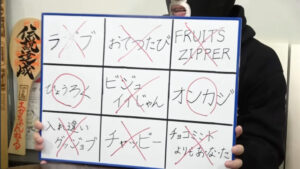 ラブブ
おてつたび
FRUITS
ZIPPER
ひょうろく
ビジュ
イイじゃん
オンカジ
入れ違い
グッジョブ
チャッピー
チョコミント
よりもあ・な・た